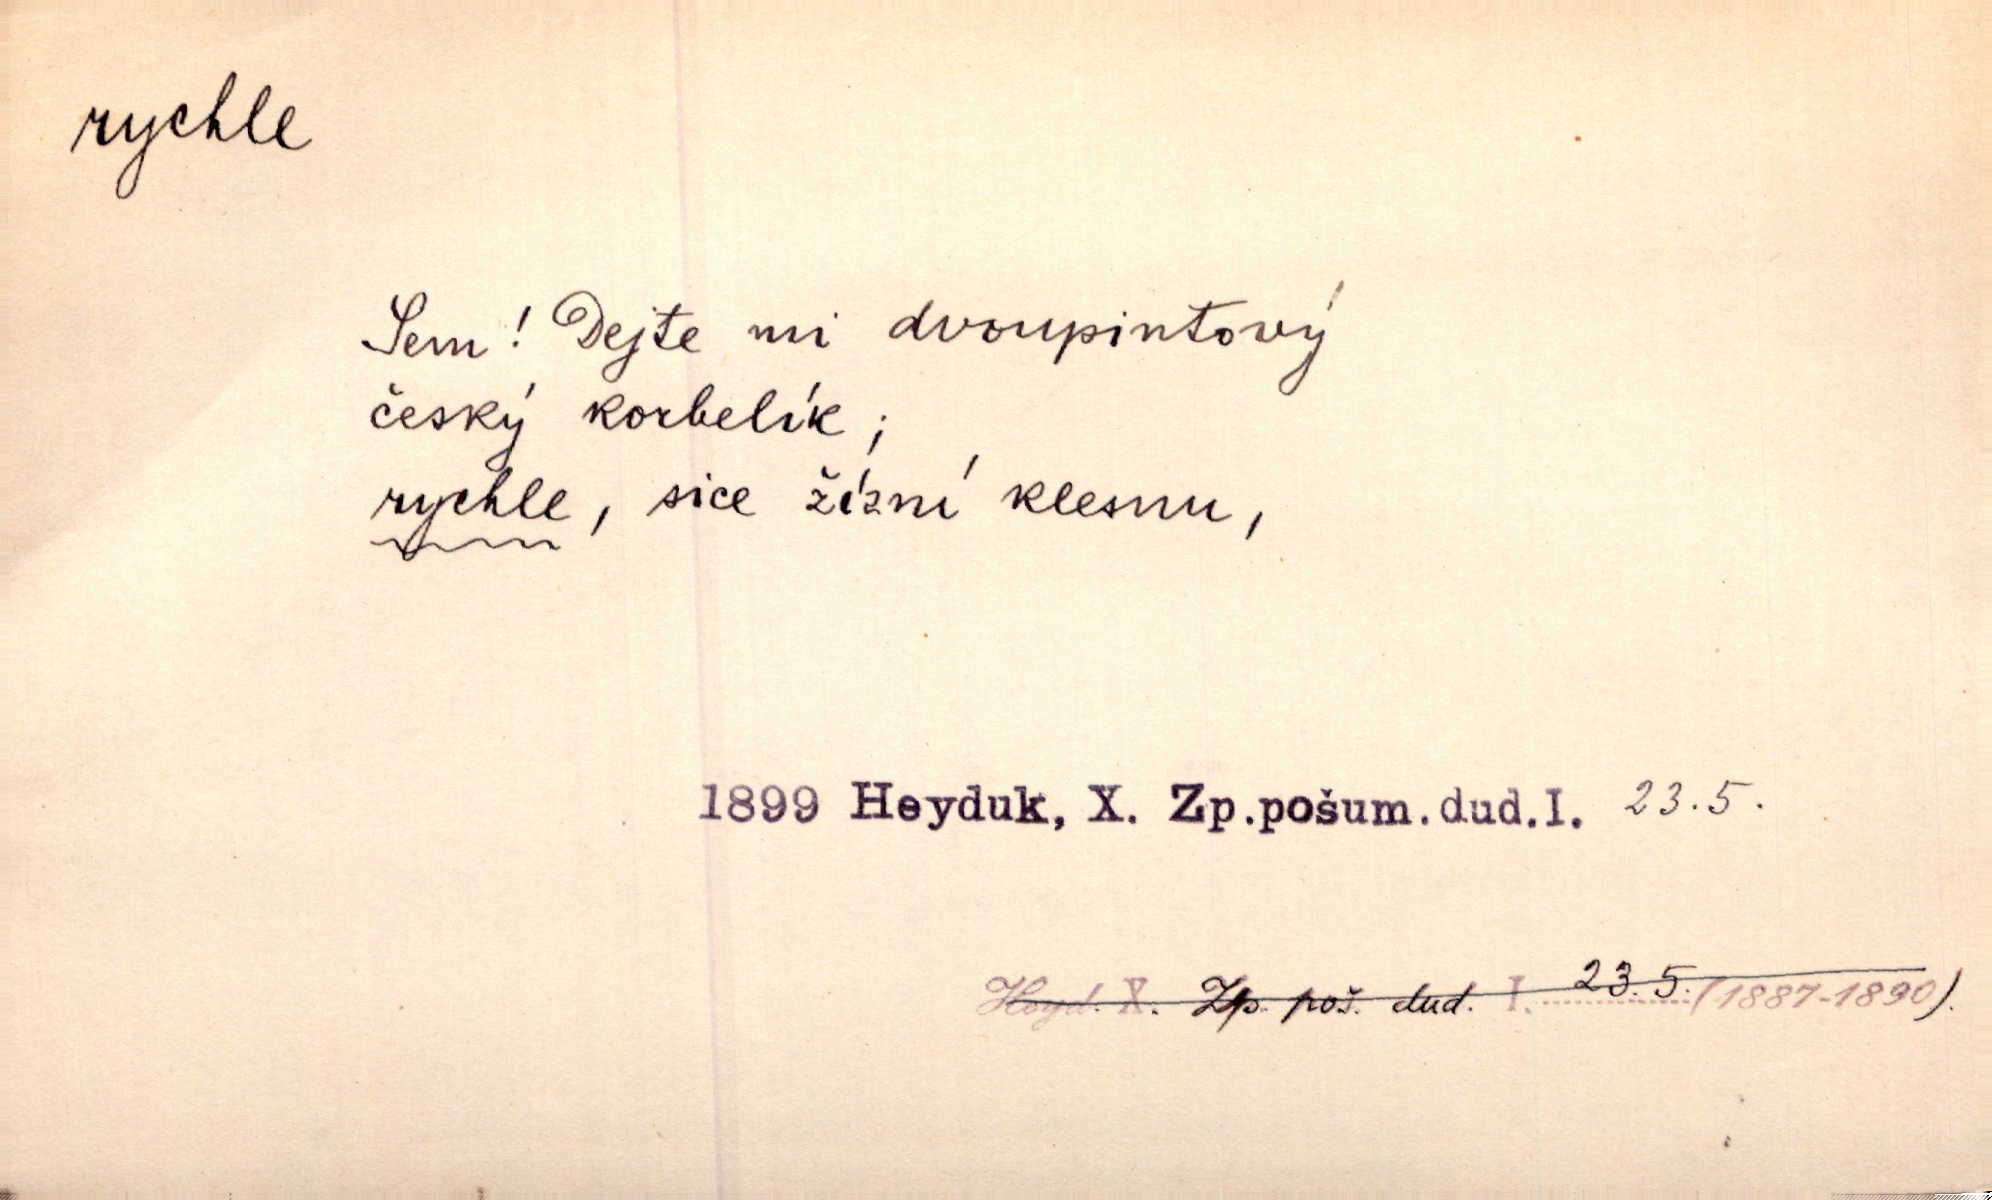 rychle
Sem! Dejte mi dvoupintový
český korbelík;
rychle, sice žízní klesnu,
1899 Heyduk, X. Zp.pošum.dud.I. 23.5.
Heyd. X. Zp. poš. dud. I. 23.5. (1887-1890).